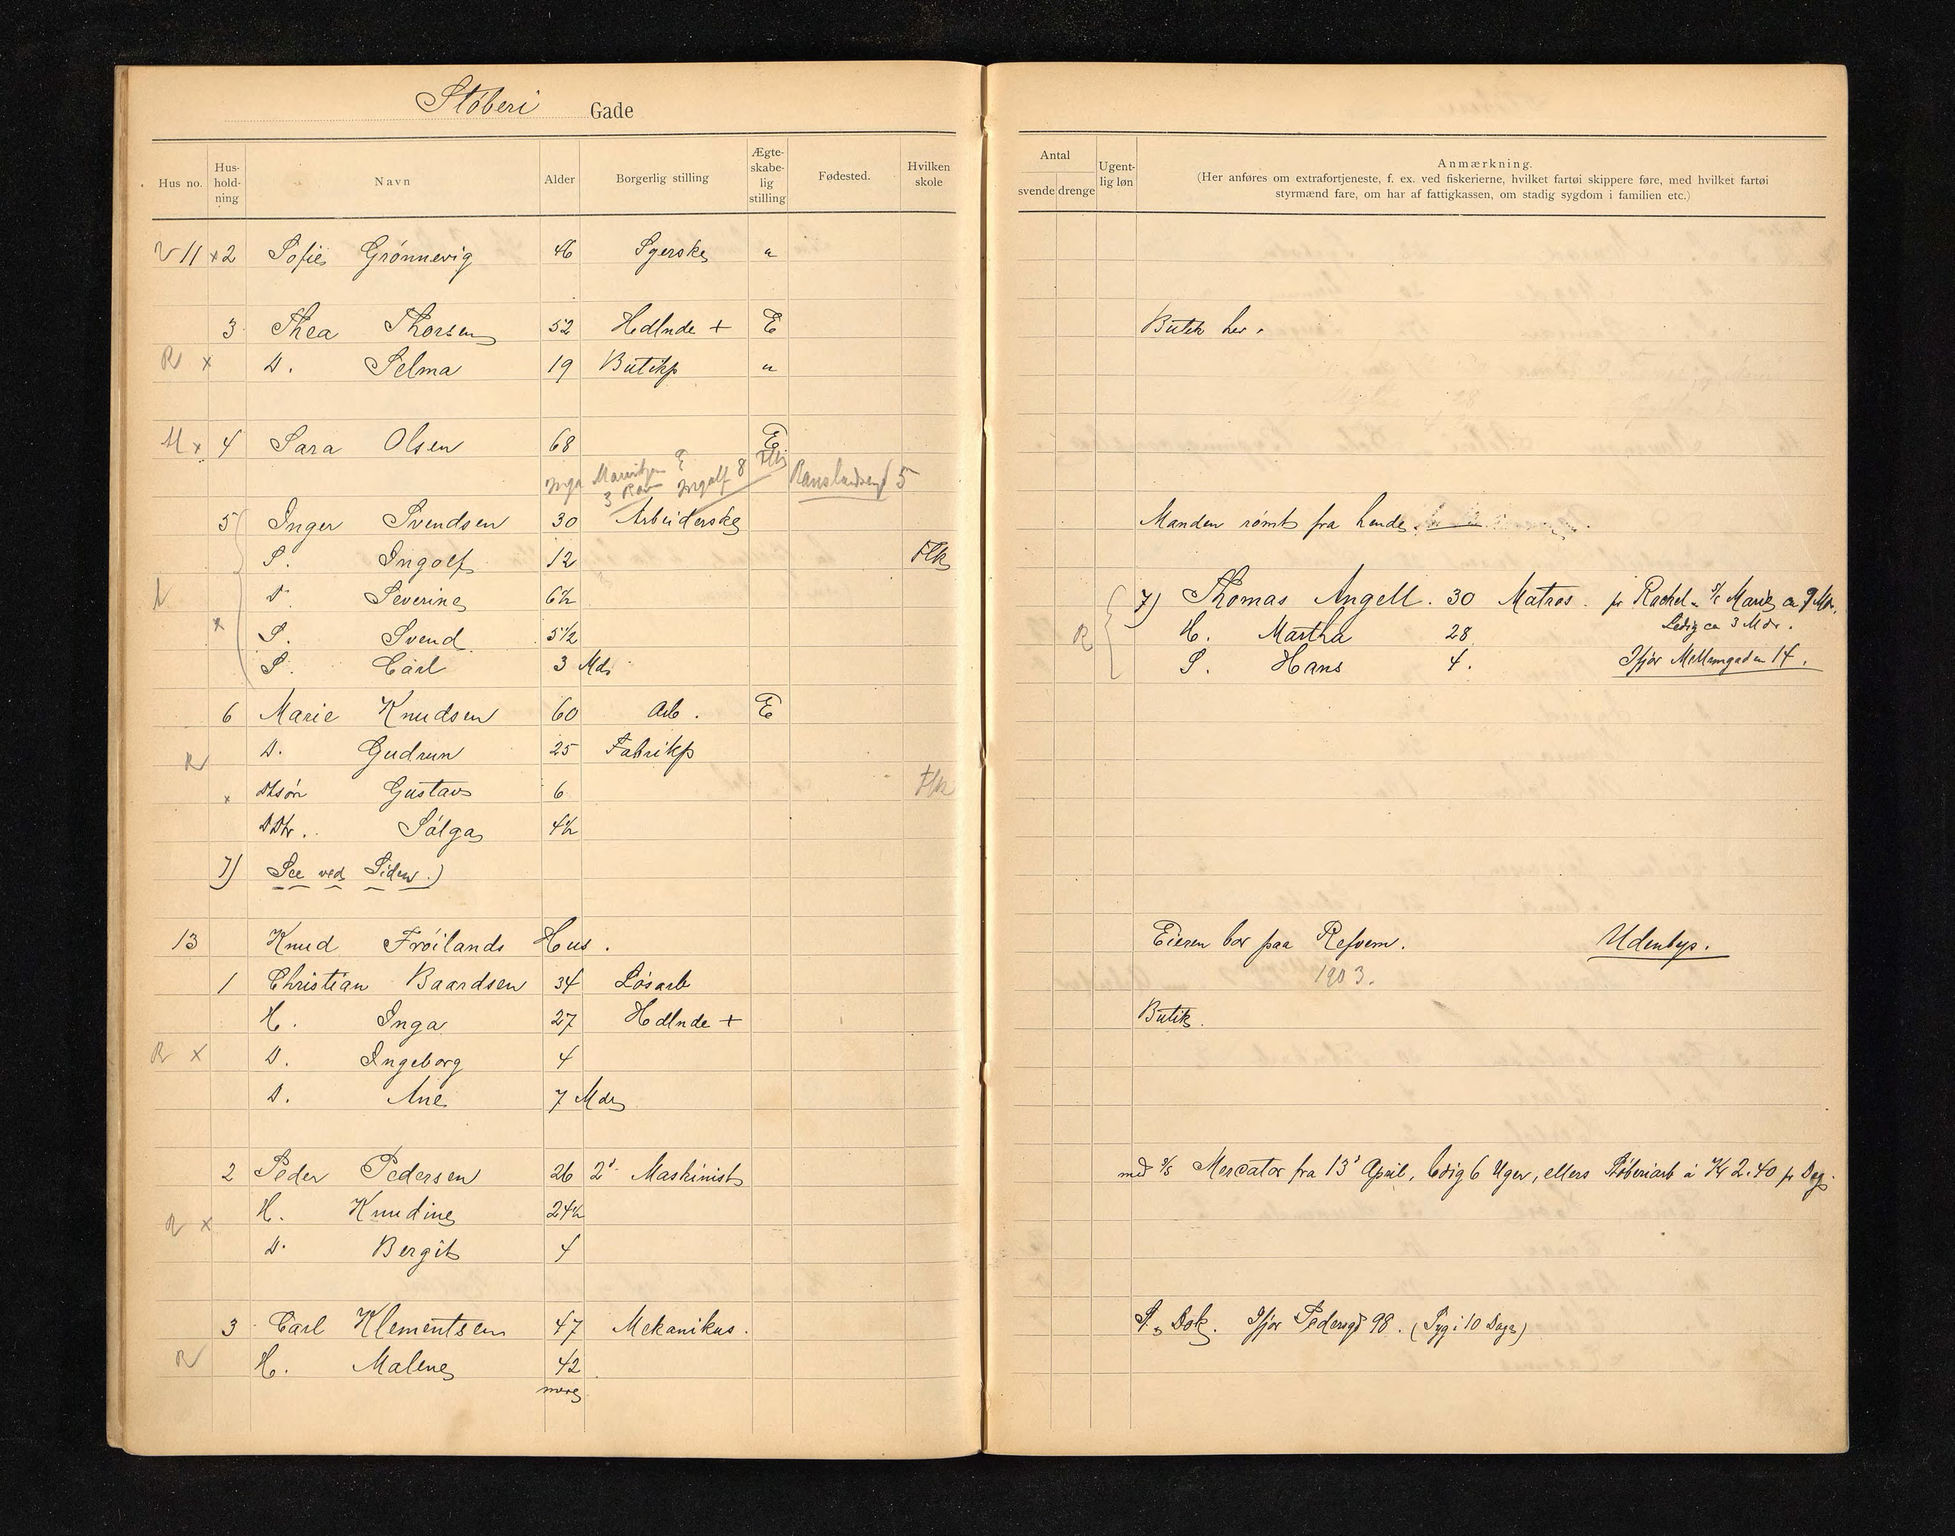 Støberi Gade
Hus no. Hus-hold-ning Navn Alder Borgerlig stilling Ægte-skabe-lig stilling Fødested. Hvilken skole
11 x 2 Sofie Grønnevig 46 Syerske u
3 Thea Thorsen 52 Hdlnde + E
R x D. Selma 19 Butikp u
x 4 Sara Olsen 68 E
Inga 3 Ingolf 8 5
5 Inger Svendsen 30 Arbeiderske
S. Ingolf 12 Flk
D. Severine 6½
x S. Svend 5½
S. Carl 3 Mdr
6 Marie Knudsen 60 Arb. E
R D. Gudrun 25 Fabrikp
x Dtsøn Gustav 6 Flk
DDtr. Sølga 4½
7) See ved Siden.)
13 Knud Frøilands Hus.
1 Christian Baardsen 34 Løsarb
H. Inga 27 Hdlnde +
R x D. Ingeborg 4
D. Ane 7 Mdr
2 Peder Pedersen 26 2d Maskinist
H. Knudine 24½
R x D. Bergit 4
3 Carl Klementsen 47 Mekanikus.
R H. Malene 42
mere
Antal
svende drenge Ugent-lig løn
Anmærkning.
(Her anføres om extrafortjeneste, f. ex. ved fiskerierne, hvilket fartøi skippere føre, med hvilket fartøi
styrmænd fare, om har af fattigkassen, om stadig sygdom i familien etc.)
Butik her.
Manden rømt fra hende.
7) Thomas Angell. 30 Matros. pr Rachel S/S Marie ca 9 Mdr.
R H. Martha 28 Ledig ca 3 Mdr.
S. Hans 4. Ifjor Mellemgaden 14.
Eieren bor paa Refvem. Udenbys.
1903.
Butik.
md S/S Mercator fra 13d April, ledig 6 Uger, ellers Støberiarb à Kr 2.40 pr Dag.
St. Dok. Ifjor Pedersgd 98. (Syg i 10 Dage)